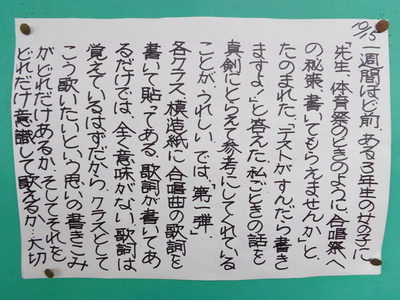 10/15
一週間ほど前、ある3年生の女の子に
「先生、体育祭のときのように合唱祭へ
の秘策、書いてもらえませんか」と、
たのまれた。「テストがすんだら書き
ますよ」と答えた。私ごときの話を
真剣にとらえて参考にしてくれている
ことが、うれしい。では、「第一弾」
各クラス、模造紙に合唱曲の歌詞を
書いて貼ってある。歌詞が書いてあ
るだけでは、全く意味がない。歌詞は
覚えているはずだから、クラスとして
こう歌いたいという思いの書きこみ
がどれだけあるか、そしてそれを
どれだけ意識して歌えるか…大切